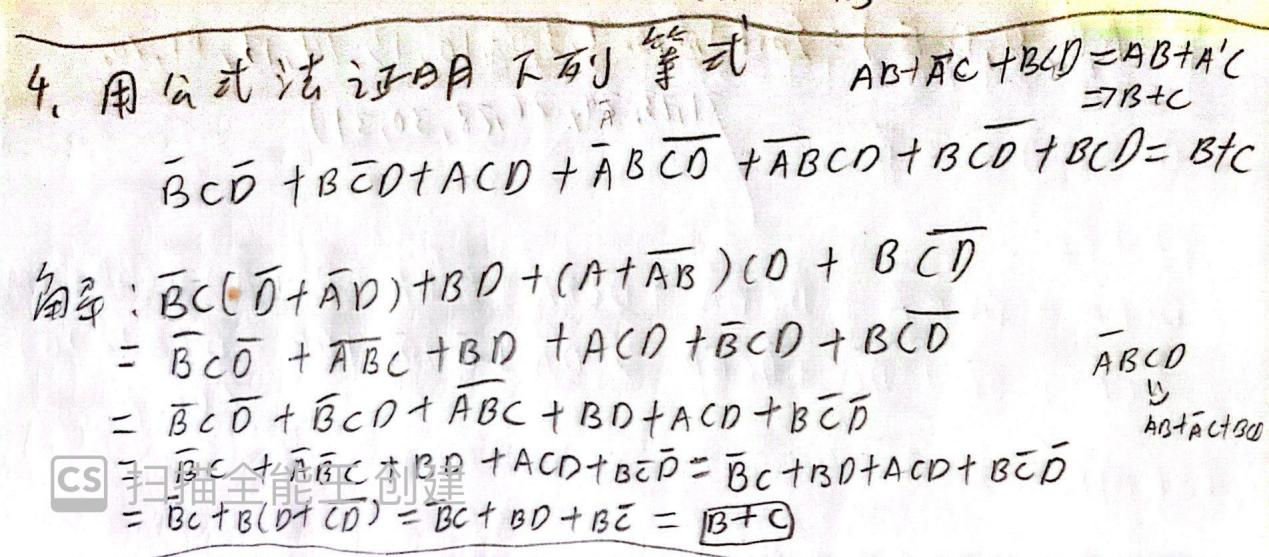 4、用公式法证明下列等式
AB+A̅C+BCD=AB+A'C
=>B+C
B̅CD̅+BC̅D+ACD+A̅BC̅D̅+A̅B̅CD+BC̅D̅+BCD=B+C
解:B̅C(D̅+A̅D)+BD+(A+A̅B̅)CD+BC̅D̅
=B̅CD̅+A̅B̅C+BD+ACD+B̅CD+BC̅D̅
A̅BCD
=B̅CD̅+B̅CD+A̅B̅C+BD+ACD+BC̅D̅
AB+A̅C+BCD
=B̅C+A̅B̅C+BD+ACD+BC̅D̅=B̅C+BD+ACD+BC̅D̅
=B̅C+B(D+C̅D̅)=B̅C+BD+BC̅=B+C
CS 扫描全能王 创建